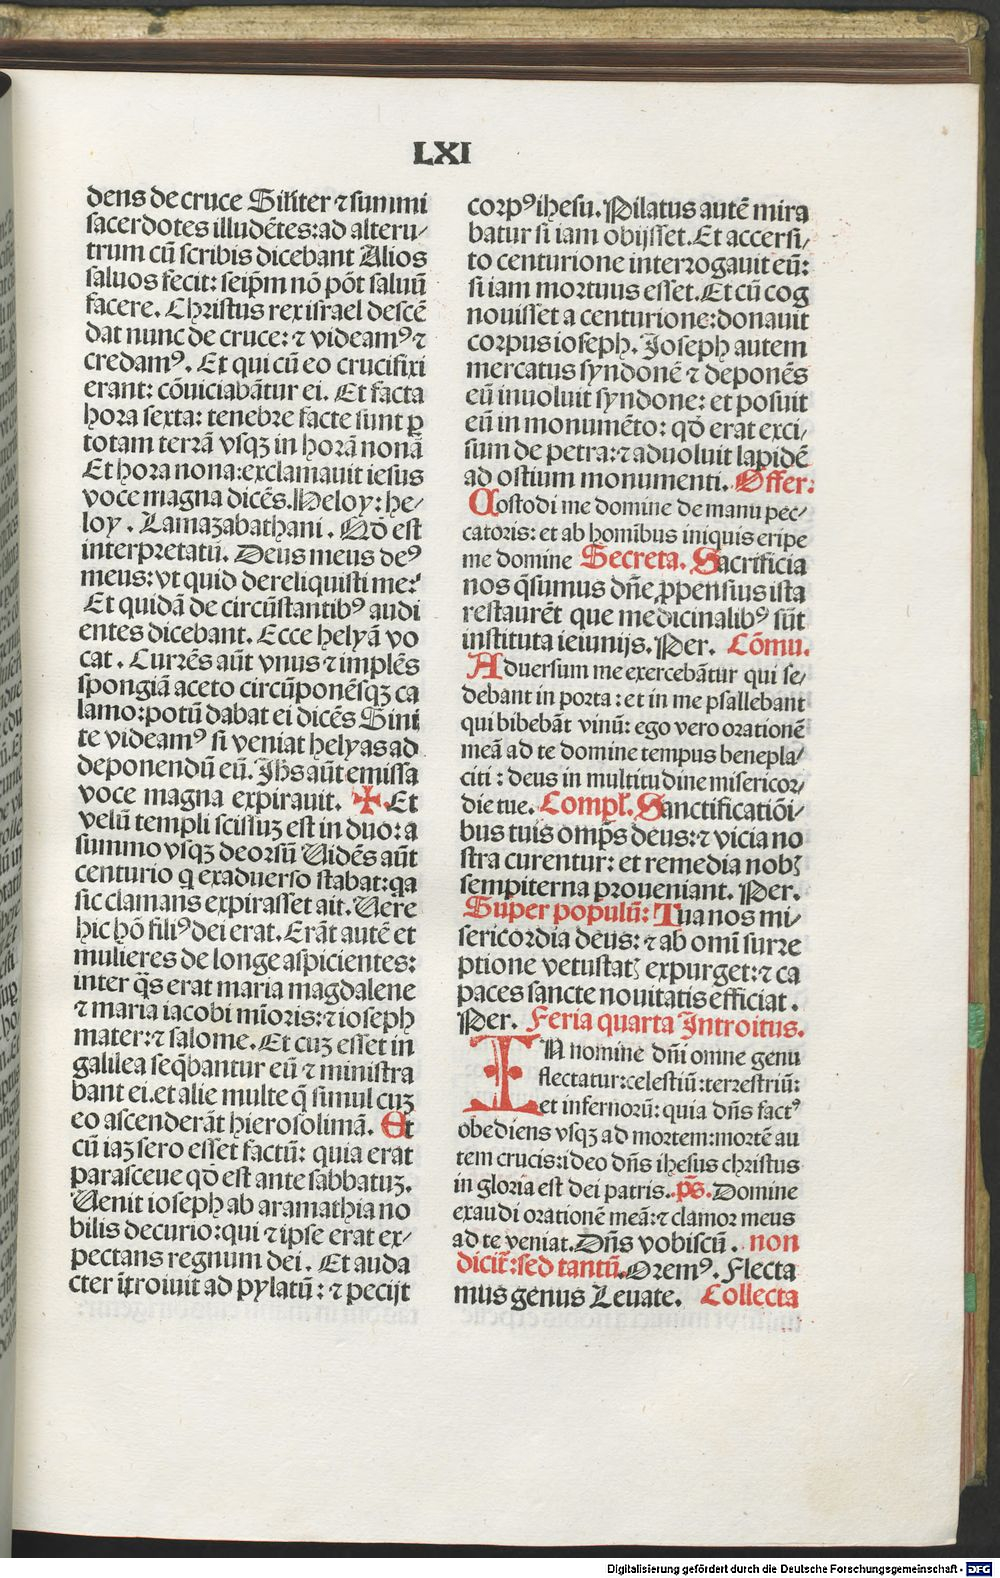 LXI
dens de cruce Siliter ⁊ summi
sacerdotes illudētes: ad alteru/
trum cū scribis dicebant Alios
saluos fecit: seip̄m nō pōt saluū
facere. Christus rex israel descē
dat nunc de cruce: ⁊ videamꝰ ⁊
credamꝰ. Et qui cū eo crucifixi
erant: cōuiciabātur ei. Et facta
hora sexta: tenebre facte sunt ꝑ
totam terrā vsqꝫ in horā nonā
Et hora nona: exclamauit iesus
voce magna dicēs. Heloy: he/
loy. Lamazabathani. Qd̄ est
interpretatū. Deus meus deꝰ
meus: vt quid dereliquisti me?
Et quidā de circūstantibꝰ audi
entes dicebant. Ecce helyā vo
cat. Currēs aūt vnus ⁊ implēs
spongiā aceto circūponēsqꝫ ca
lamo: potū dabat ei dicēs Sini
te videamꝰ si veniat helyas ad
deponendū eū. Ihs aūt emissa
voce magna expirauit. ✠. Et
velū templi scissuꝫ est in duo: a
summo vsqꝫ deorsū Uidēs aūt
centurio q exaduerso stabat: qa
sic clamans expirasset ait. Uere
hic hō filiꝰ dei erat. Erāt autē et
mulieres de longe aspicientes:
inter q̄s erat maria magdalene
⁊ maria iacobi mīoris: ⁊ ioseph
mater: ⁊ salome. Et cuꝫ esset in
galilea seq̄bantur eū ⁊ ministra
bant ei. et alie multe q̄ simul cuꝫ
eo ascenderāt hierosolimā. Et
cū iaꝫ sero esset factū: quia erat
parasceue qd̄ est ante sabbatuꝫ.
Uenit ioseph ab aramathia no
bilis decurio: qui ⁊ ipse erat ex/
pectans regnum dei. Et auda
cter ītroiuit ad pylatū: ⁊ pecijt
corpꝰ ihesu. Pilatus autē mira
batur si iam obijsset. Et accersi/
to centurione interrogauit eū:
si iam mortuus esset. Et cū cog
nouisset a centurione: donauit
corpus ioseph. Joseph autem
mercatus syndonē ⁊ deponēs
eū inuoluit syndone: et posuit
eū in monumēto: qd̄ erat exci/
sum de petra: ⁊ aduoluit lapidē
ad ostium monumenti. Offer:
Costodi me domine de manu pec/
catoris: et ab homībus iniquis eripe
me domine Secreta. Sacrificia
nos q̄sumus dn̄e ꝓpensius ista
restaurēt que medicinalibꝰ sūt
instituta ieiunijs. Per. Cōmu.
Aduersum me exercebātur qui se/
debant in porta: et in me psallebant
qui bibebāt vinū: ego vero orationē
meā ad te domine tempus benepla/
citi: deus in multitudine misericor/
die tue. Compl̄. Sanctificatiōi/
bus tuis omp̄s deus: ⁊ vicia no
stra curentur: et remedia nobꝫ
sempiterna proueniant. Per.
Super populū: Tua nos mi/
sericordia deus: ⁊ ab omī surre
ptione vetustatꝫ expurget: ⁊ ca
paces sancte nouitatis efficiat.
Per. Feria quarta Introitus.
IN nomine dn̄i omne genu
flectatur: celestiū: terrestriū:
et infernorū: quia dn̄s factꝰ
obediens vsqꝫ ad mortem: mortē au
tem crucis: ideo dn̄s ihesus christus
in gloria est dei patris. p̄s. Domine
exaudi orationē meā: ⁊ clamor meus
ad te veniat. Dn̄s vobiscū. non
dicit̄: sed tantū. Oremꝰ. Flecta
mus genus Leuate. Collecta
Digitalisierung gefördert durch die Deutsche Forschungsgemeinschaft - DFG